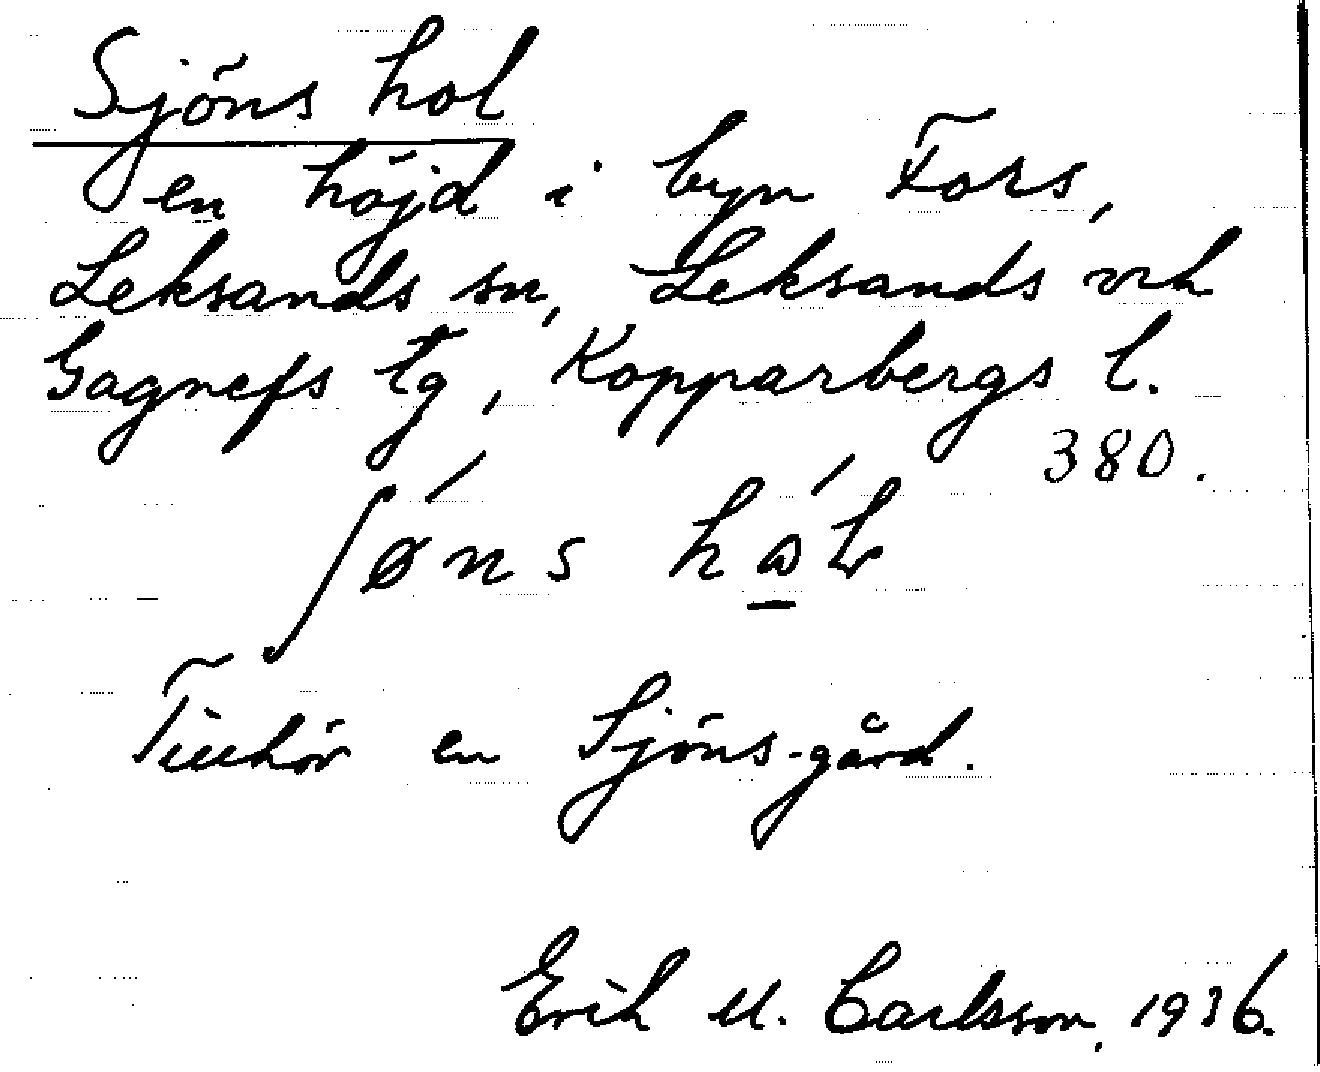 Sjöns hol
en höjd i byn Fors,
Leksands sn, Leksands och
Gagnefs tg, Kopparbergs l.
380.
Tillhör en Sjöns-gård.
Erik M. Carlsson, 1936.